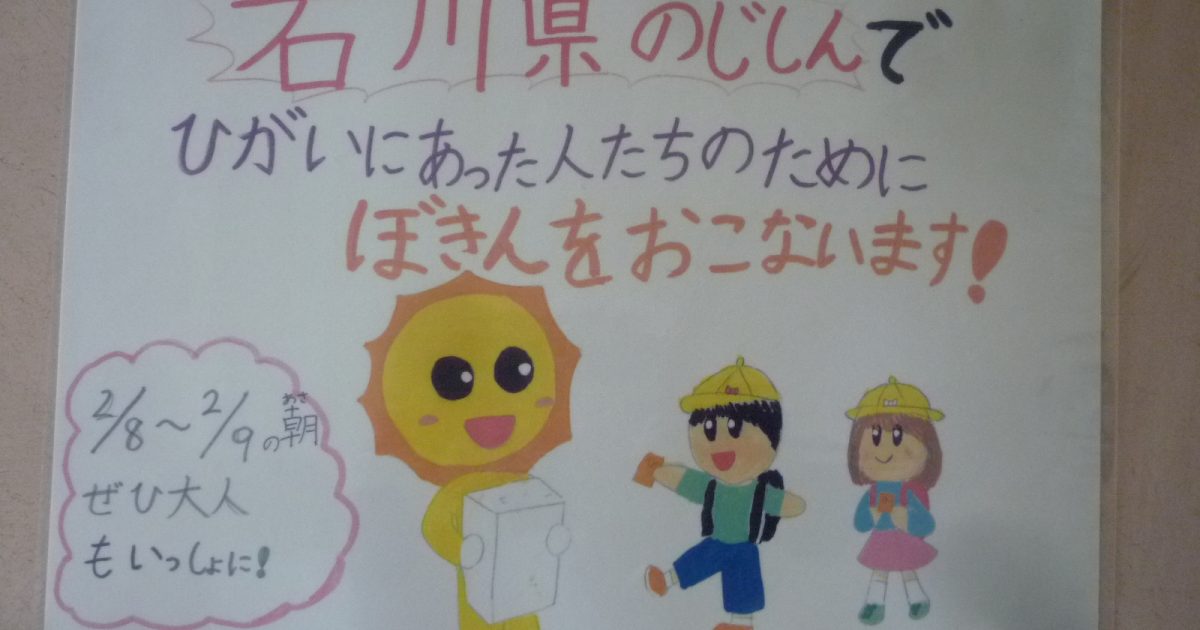 石川県のじしんで
ひがいにあった人たちのために
ぼきんをおこないます!
2/8～2/9の朝
あさ
ぜひ大人
もいっしょに!